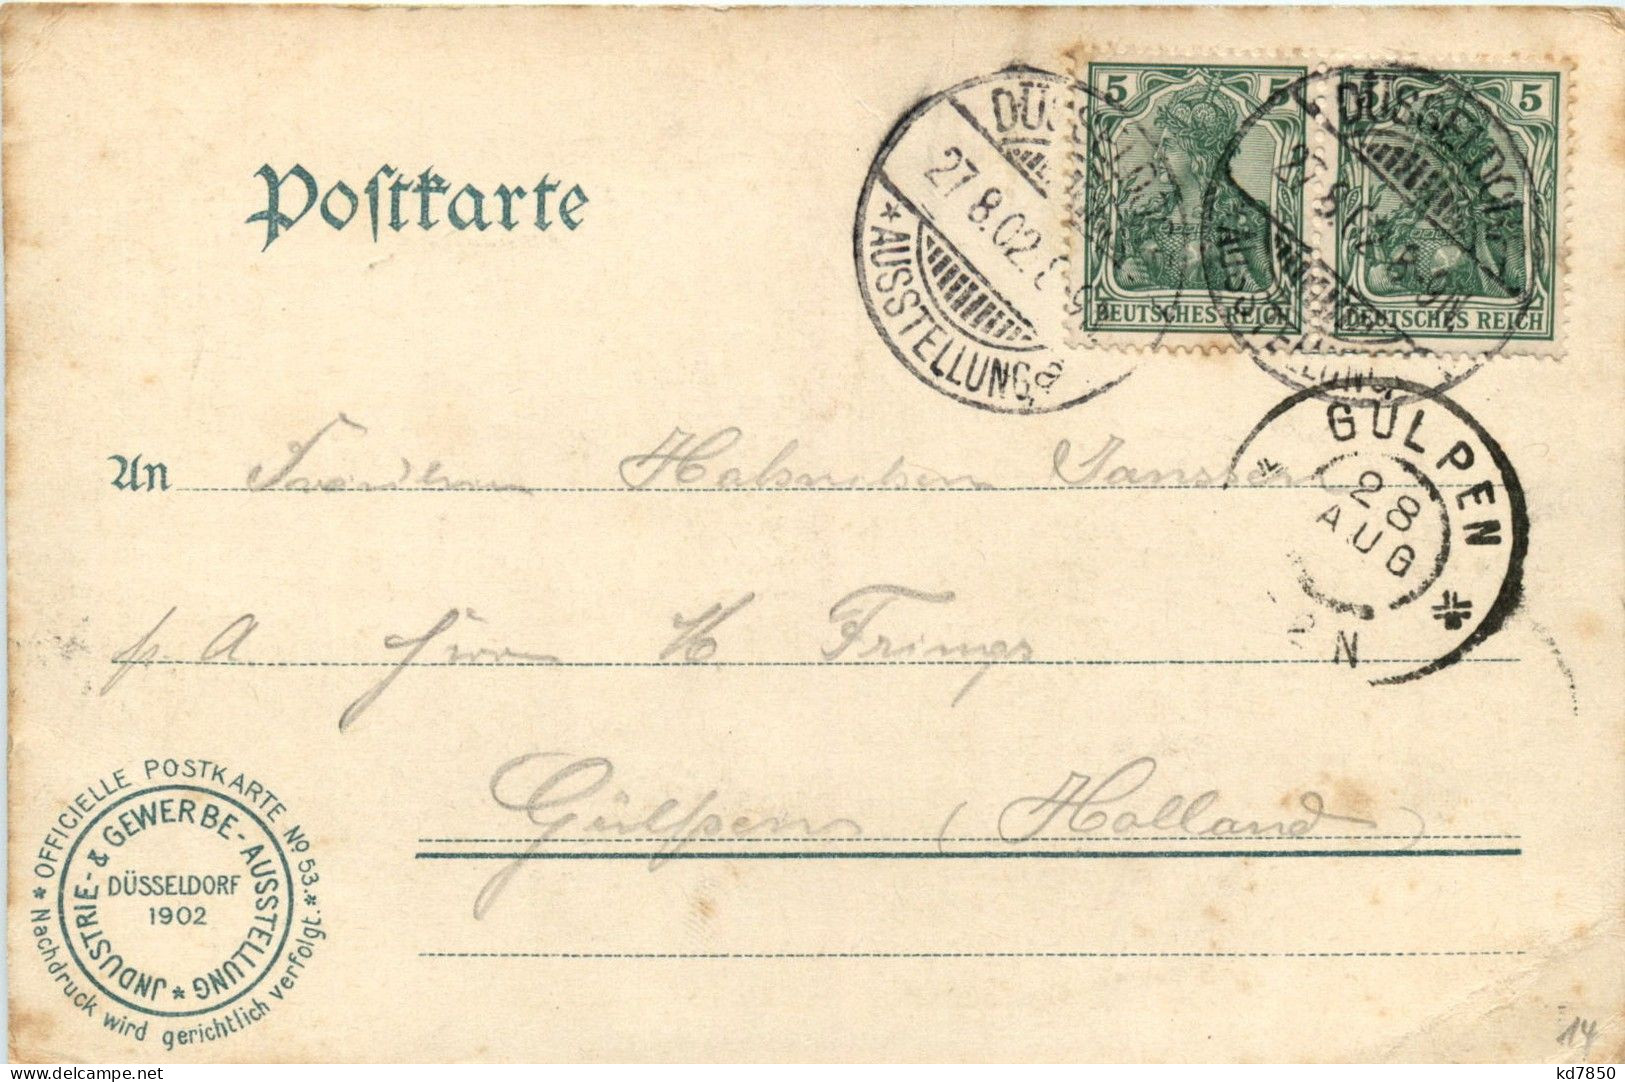 Postkarte
5 5
DEUTSCHES REICH
5 5
DEUTSCHES REICH
DÜSSELDORF
27.8.02.
* AUSSTELLUNG, a
DÜSSELDORF
27.8.02. 8-9N
* AUSSTELLUNG,
GULPEN
28
AUG
2 N
An Fräulein Janssen
p. A. Herrn H. Frings
Gülpen (Holland)
* OFFICIELLE POSTKARTE No 53. *
JNDUSTRIE- & GEWERBE-AUSSTELLUNG *
DÜSSELDORF
1902
Nachdruck wird gerichtlich verfolgt.
14
kd7850